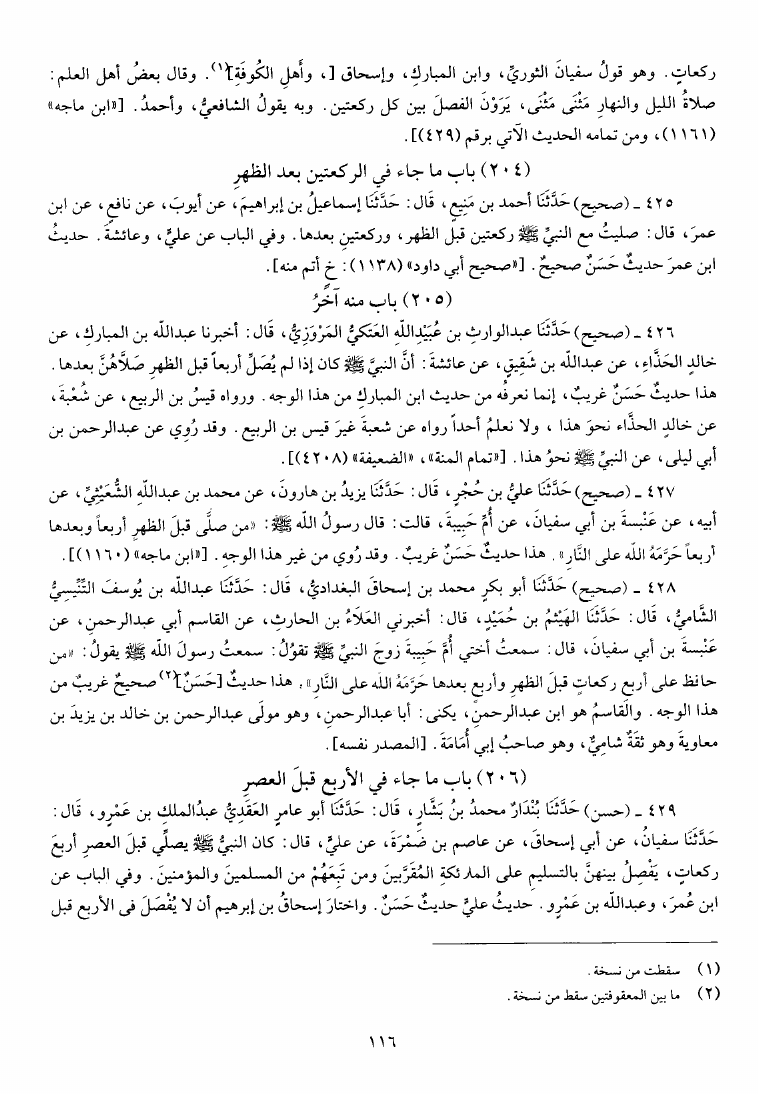 ركعاتٍ. وهو قولُ سفيانَ الثوريِّ، وابن المباركِ، وإسحاق [، وأَهلِ الكُوفَةِ](١). وقال بعضُ أهل العلم:
صلاةُ الليل والنهارِ مَثْنَى مَثْنَى، يَرَوْنَ الفصلَ بين كل ركعتين. وبه يقولُ الشافعيُّ، وأحمدُ. [«ابن ماجه»
(١١٦١)، ومن تمامه الحديث الآتي برقم (٤٢٩)].
(٢٠٤) باب ما جاء في الركعتين بعد الظهرِ
٤٢٥ ـ (صحيح) حَدَّثَنَا أحمد بن مَنِيع، قال: حَدَّثَنَا إسماعيلُ بن إبراهيمَ، عن أيوبَ، عن نافعٍ، عن ابن
عمرَ، قال: صليتُ مع النبيِّ ﷺ ركعتين قبلَ الظهر، وركعتينِ بعدها. وفي الباب عن عليٍّ، وعائشةَ. حديثُ
ابن عمرَ حديثٌ حَسَنٌ صحيحٌ. [«صحيح أبي داود» (١١٣٨): خ أتم منه].
(٢٠٥) باب منه آخَرُ
٤٢٦ ـ (صحيح) حَدَّثَنَا عبدالوارثِ بن عُبَيْدِاللهِ العَتَكيُّ المَرْوَزِيُّ، قال: أخبرنا عبدالله بن المباركِ، عن
خالدٍ الحَذَّاءِ، عن عبدالله بن شَقِيقٍ، عن عائشةَ: أنَّ النبيَّ ﷺ كان إذا لم يُصَلِّ أربعاً قبل الظهرِ صَلَّاهُنَّ بعدها.
هذا حديثٌ حَسَنٌ غريبٌ، إنما نعرفُه من حديث ابن المباركِ من هذا الوجه. ورواه قيسُ بن الربيع، عن شُعْبةَ،
عن خالد الحذَّاء نحوَ هذا ، ولا نعلمُ أحداً رواه عن شعبةَ غيرَ قيس بن الربيع. وقد رُوِي عن عبدالرحمن بن
أبي ليلى، عن النبيِّ ﷺ نحوُ هذا. [«تمام المنة»، «الضعيفة» (٤٢٠٨)].
٤٢٧ ـ (صحيح) حَدَّثَنَا عليُّ بن حُجْرٍ، قال: حَدَّثَنَا يزيدُ بن هارونَ، عن محمد بن عبداللهِ الشُّعَيْثِيِّ، عن
أبيه، عن عَنْبسةَ بن أبي سفيانَ، عن أُمِّ حَبِيبةَ، قالت: قال رسولُ الله ﷺ: «من صلَّى قبلَ الظهرِ أربعاً وبعدها
أربعاً حَرَّمَهُ الله على النَّارِ». هذا حديثٌ حَسَنٌ غريبٌ. وقد رُوِي من غير هذا الوجهِ. [«ابن ماجه» (١١٦٠)].
٤٢٨ ـ (صحيح) حَدَّثَنَا أبو بكرٍ محمد بن إسحاقَ البغداديُّ، قال: حَدَّثَنَا عبدالله بن يُوسفَ التِّنِّيسِيُّ
الشَّاميُّ، قال: حَدَّثَنَا الهَيْثمُ بن حُمَيْدٍ، قال: أخبرني العَلَاءُ بن الحارثِ، عن القاسم أبي عبدالرحمنِ، عن
عَنْبسةَ بن أبي سفيانَ، قال: سمعتُ أختي أُمَّ حَبِيبةَ زوجَ النبيِّ ﷺ تقوُلُ: سمعتُ رسولَ الله ﷺ يقولُ: «من
حافظ على أربع ركعاتٍ قبلَ الظهرِ وأربعٍ بعدها حَرَّمَهُ الله على النَّارِ». هذا حديثٌ [حَسَنٌ](٢) صحيحٌ غريبٌ من
هذا الوجه. والقاسمُ هو ابن عبدالرحمنِ، يكنى: أبا عبدالرحمنِ، وهو مولَى عبدالرحمن بن خالد بن يزيدَ بن
معاويةَ وهو ثقةٌ شاميٌّ، وهو صاحبُ إبي أُمَامَةَ. [المصدر نفسه].
(٢٠٦) باب ما جاء في الأربع قبلَ العصرِ
٤٢٩ ـ (حسن) حَدَّثَنَا بُنْدَارٌ محمدُ بنُ بَشَّارٍ، قال: حَدَّثَنَا أبو عامرٍ العَقَدِيُّ عبدُالملكِ بن عَمْرٍو، قال:
حَدَّثَنَا سفيانُ، عن أبي إسحاقَ، عن عاصم بن ضَمْرَةَ، عن عليٍّ، قال: كان النبيُّ ﷺ يصلِّي قبلَ العصرِ أربعَ
ركعاتٍ، يَفْصِلُ بينهنَّ بالتسليمِ على الملائكةِ المُقَرَّبينَ ومن تَبِعَهُمْ من المسلمينَ والمؤمنينَ. وفي الباب عن
ابن عُمرَ، وعبدالله بن عَمْرٍو. حديثُ عليٍّ حديثٌ حَسَنٌ. واختارَ إسحاقُ بن إبرهيم أن لا يُفْصَلَ في الأربع قبل
(١) سقطت من نسخة.
(٢) ما بين المعقوفتين سقط من نسخة.
١١٦